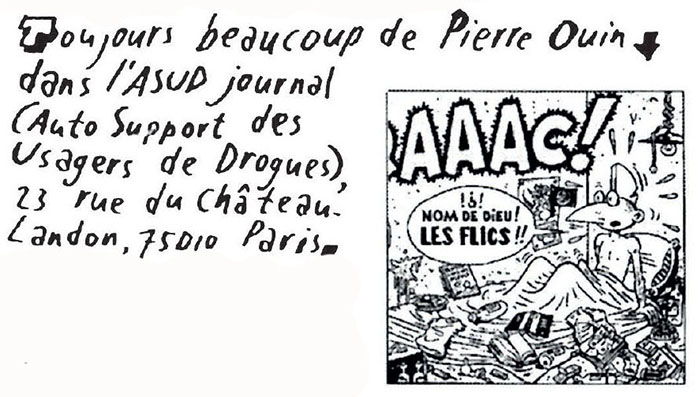 Toujours beaucoup de Pierre Ouin
dans l'ASUD journal
(Auto Support des
Usagers de Drogues),
23 rue du Château-
Landon, 75010 Paris.
AAAC!
!à!
NOM DE DIEU!
LES FLICS!!